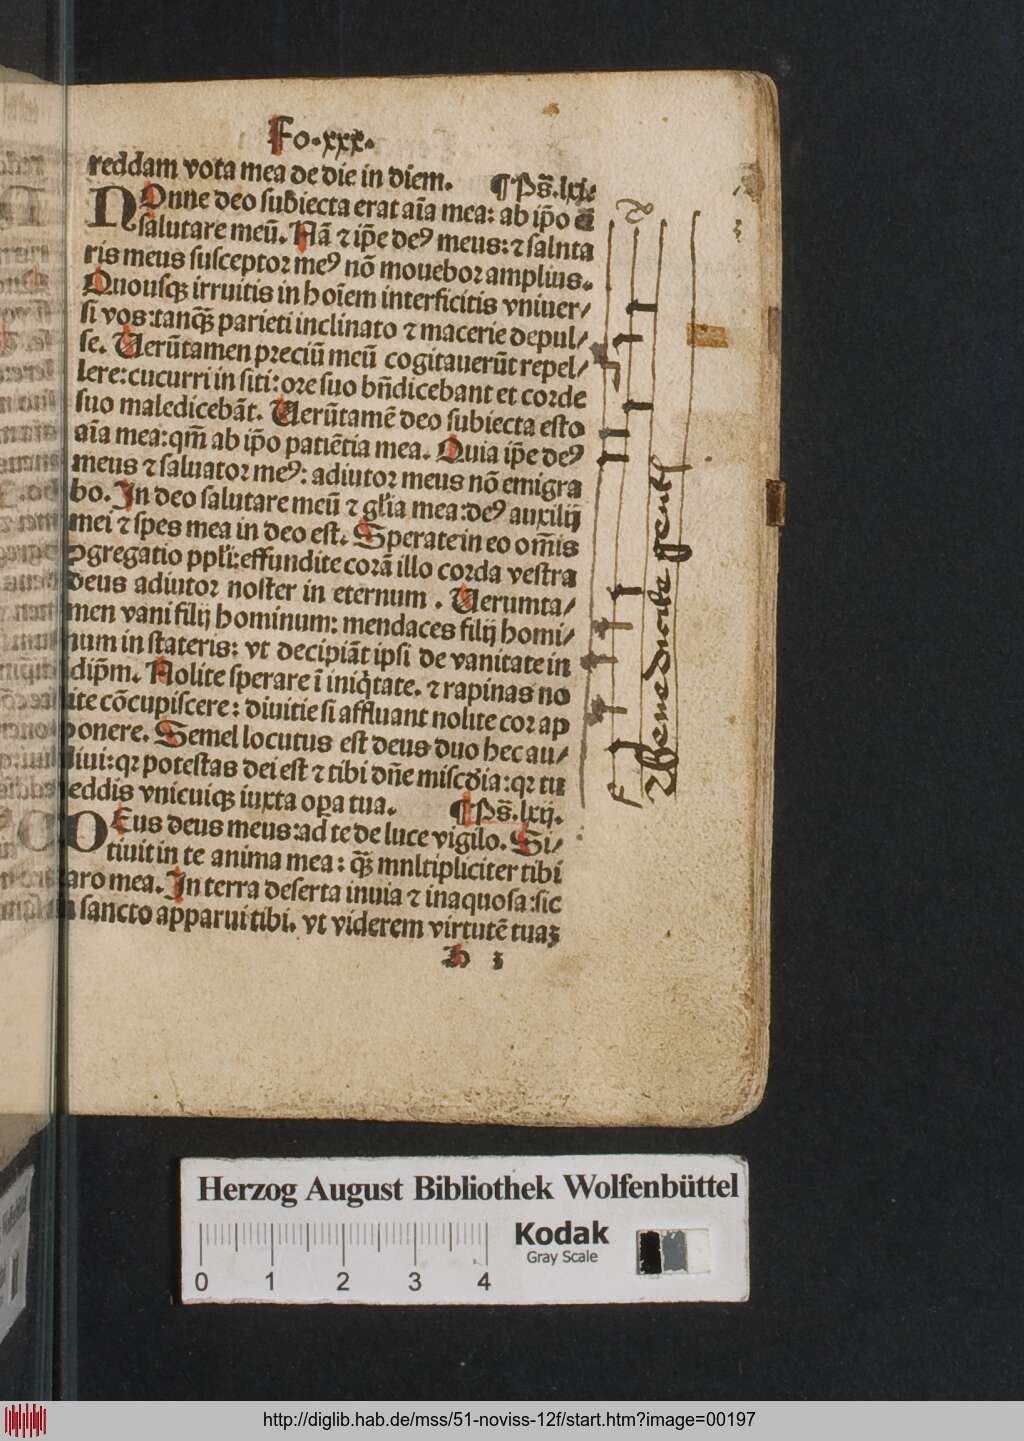 Fo.xxx.
reddam vota mea de die in diem. ¶ Ps̄.lxi.
NOnne deo subiecta erat aīa mea: ab ip̄o em̄
salutare meū. Nā ⁊ ip̄e deꝰ meus: ⁊ salnta
ris meus susceptor meꝰ nō mouebor amplius.
Quousqꝫ irruitis in hoīem interficitis vniuer/
si vos: tanqꝫ̄ parieti inclinato ⁊ macerie depul/
se. Uerūtamen preciū meū cogitauerūt repel/
lere: cucurri in siti: ore suo bn̄dicebant et corde
suo maledicebāt. Uerūtamē deo subiecta esto
aīa mea: qm̄ ab ip̄o patiētia mea. Quia ip̄e deꝰ
meus ⁊ saluator meꝰ: adiutor meus nō emigra
bo. In deo salutare meū ⁊ gl'ia mea: deꝰ auxilij
mei ⁊ spes mea in deo est. Sperate in eo om̄is
ꝯgregatio ppl'i: effundite corā illo corda vestra
deus adiutor noster in eternum. Uerumta/
men vani filij hominum: mendaces filij homi/
num in stateris: vt decipiāt ipsi de vanitate in
idip̄m. Nolite sperare ī iniq̇tate. ⁊ rapinas no
lite cōcupiscere: diuitie si affluant nolite cor ap
ponere. Semel locutus est deus duo hec au/
diui: qꝛ potestas dei est ⁊ tibi dn̄e misc̄dia: qꝛ tu
reddis vnicuiqꝫ iuxta oꝑa tua. ¶ Ps̄.lxij.
DEus deus meus: ad te de luce vigilo. Si/
tiuit in te anima mea: qꝫ̄ mnltipliciter tibi
caro mea. In terra deserta inuia ⁊ inaquosa: sic
in sancto apparui tibi. vt viderem virtutē tuaꝫ
Benedicite gentes
Herzog August Bibliothek Wolfenbüttel
Kodak
Gray Scale
0 1 2 3 4
http://diglib.hab.de/mss/51-noviss-12f/start.htm?image=00197